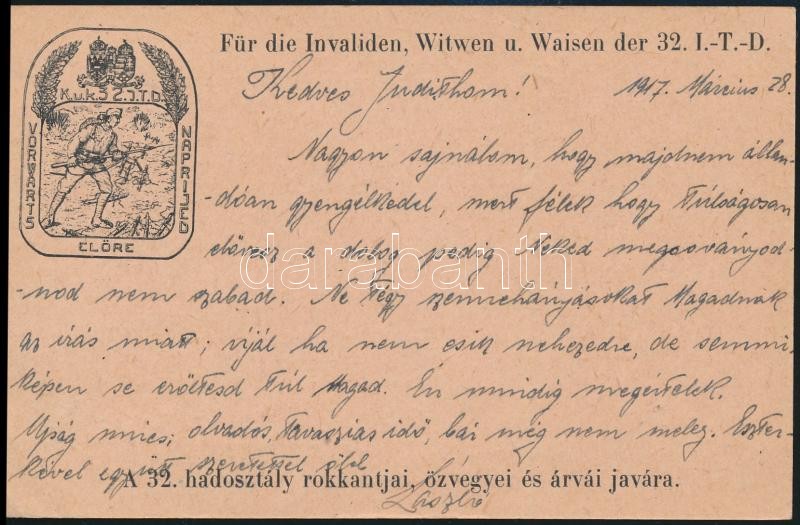 Für die Invaliden, Witwen u. Waisen der 32. I.-T.-D.
K.u.k. 32. I.T.D.
VORWÄRTS
NAPRIJED
ELÖRE
Kedves Judithom! 1917. Március 28.
Nagyon sajnálom, hogy majdnem állan-
-dóan gyengélkedel, mert félek hogy túlságosan
elővesz a dolog pedig Neked megsoványod-
-nod nem szabad. Ne tégy szemrehányásokat Magadnak
az írás miatt; írjál ha nem esik nehezedre, de semmi-
képen se erőltesd túl Magad. Én mindig megértelek.
Ujság nincs; olvadós, tavaszias idő, bár még nem meleg. Eszter-
kével együtt szeretettel ölel
László
A 32. hadosztály rokkantjai, özvegyei és árvái javára.
darabanth